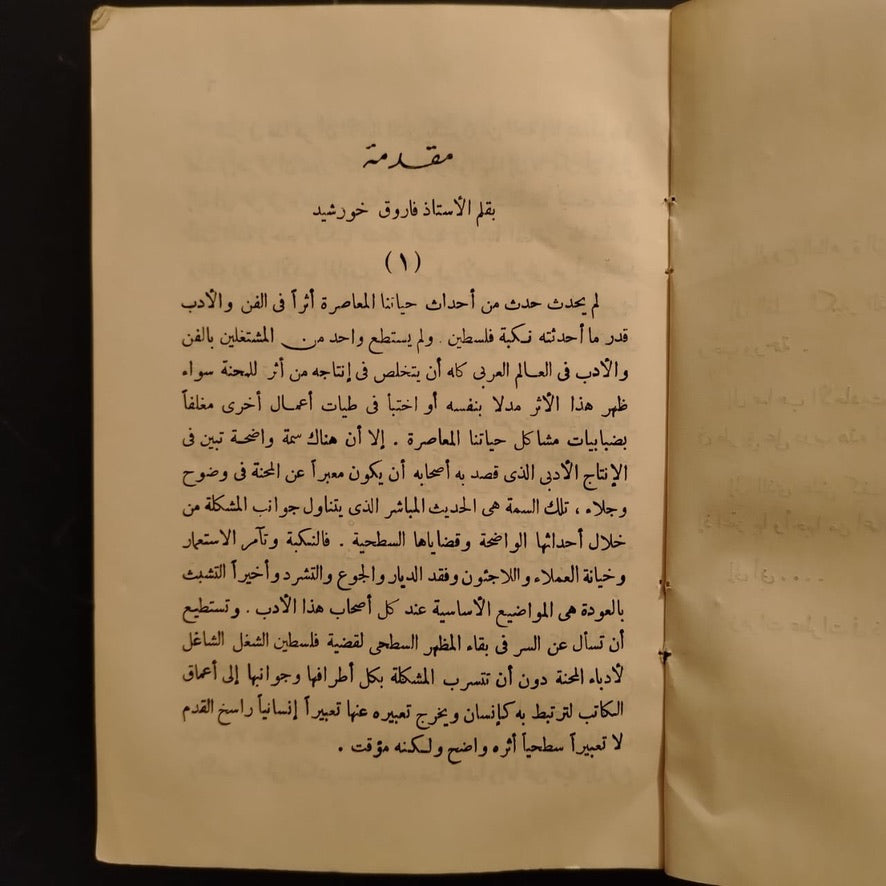 مقدمة
بقلم الأستاذ فاروق خورشيد
(١)
لم يحدث حدث من أحداث حياتنا المعاصرة أثراً فى الفن والأدب
قدر ما أحدثته نكبة فلسطين . ولم يستطع واحد من المشتغلين بالفن
والأدب فى العالم العربى كله أن يتخلص فى إنتاجه من أثر للمحنة سواء
ظهر هذا الأثر مدلا بنفسه أو اختبأ فى طيات أعمال أخرى مغلفاً
بضبابيات مشاكل حياتنا المعاصرة . إلا أن هناك سمة واضحة تبين فى
الإنتاج الأدبى الذى قصد به أصحابه أن يكون معبراً عن المحنة فى وضوح
وجلاء ، تلك السمة هى الحديث المباشر الذى يتناول جوانب المشكلة من
خلال أحداثها الواضحة وقضاياها السطحية . فالنكبة وتآمر الاستعمار
وخيانة العملاء واللاجئون وفقد الديار والجوع والتشرد وأخيراً التشبث
بالعودة هى المواضيع الأساسية عند كل أصحاب هذا الأدب . وتستطيع
أن تسأل عن السر فى بقاء المظهر السطحى لقضية فلسطين الشغل الشاغل
لأدباء المحنة دون أن تتسرب المشكلة بكل أطرافها وجوانبها إلى أعماق
الكاتب لترتبط به كإنسان ويخرج تعبيره عنها تعبيراً إنسانياً راسخ القدم
لا تعبيراً سطحياً أثره واضح ولكنه مؤقت .